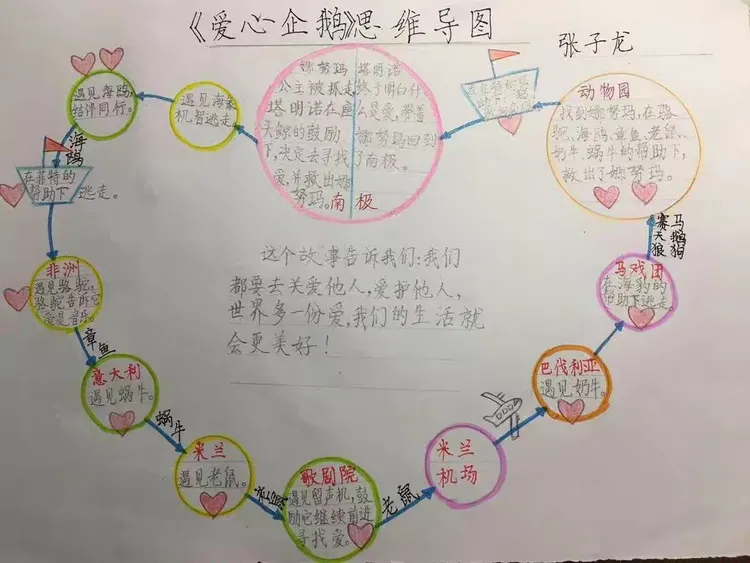 《爱心企鹅》思维导图
张子龙
娜努玛
公主被抓走
塔明诺在座
头鲸的鼓励
下,决定去寻找
爱,并救出娜
努玛。
塔明诺
终于明白什
么是爱,带着
娜努玛回到
了南极。
南极
遇见海象
机智逃走。
遇见海鸥
结伴同行。
海鸥
在菲特的
帮助下
逃走。
非洲
遇见骆驼,
骆驼告诉它
爱是音乐。
章鱼
意大利
遇见蜗牛。
蜗牛
米兰
遇见老鼠。
老鼠
歌剧院
遇见留声机,鼓
励它继续前进
寻找爱。
老鼠
米兰
机场
巴伐利亚
遇见奶牛。
马戏团
在海豹的
帮助下逃走。
赛马
天鹅
狼狗
动物园
找到娜努玛,在骆
驼、海鸥、章鱼、老鼠、
奶牛、蜗牛的帮助下,
救出了娜努玛。
在菲特的帮
助下
这个故事告诉我们:我们
都要去关爱他人,爱护他人,
世界多一份爱,我们的生活就
会更美好!